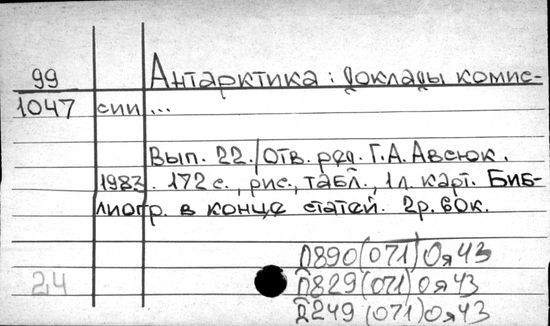 99 Антарктика : доклады комис-
1047 сии ...
Вып. 22. / Отв. ред. Г.А. Авсюк.
1983. 172 с., рис., табл., 1 л. карт. Биб-
лиогр. в конце статей. 2р. 60к.
Д890(071)0я43
24 Д829(071)0я43
Д249(071)0я43